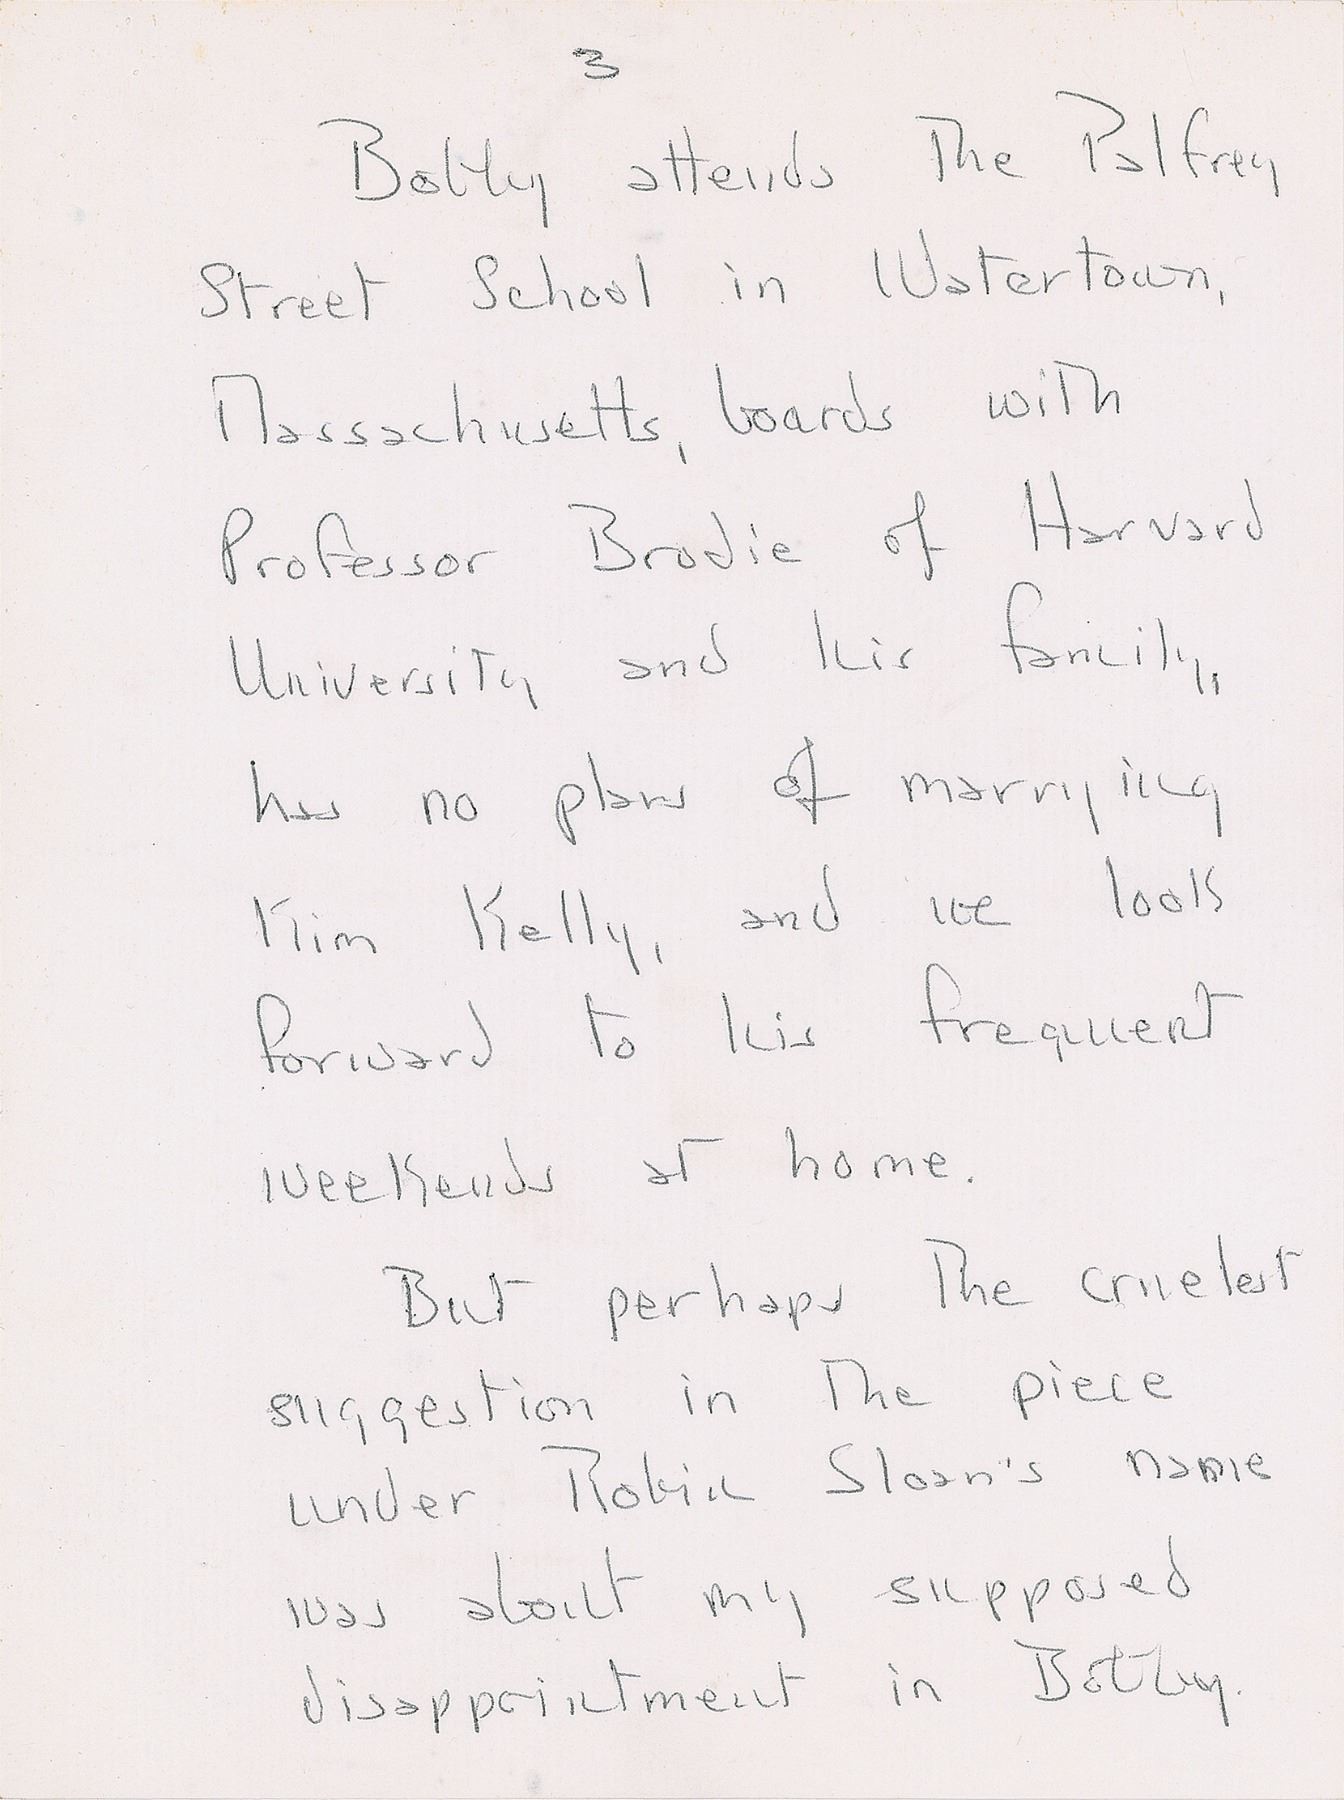 3
Bobby attends the Palfrey
Street School in Watertown,
Massachusetts, boards with
Professor Brodie of Harvard
University and his family,
has no plans of marrying
Kim Kelly, and we look
forward to his frequent
weekends at home.
But perhaps the cruelest
suggestion in the piece
under Robin Sloan's name
was about my supposed
disappointment in Bobby.